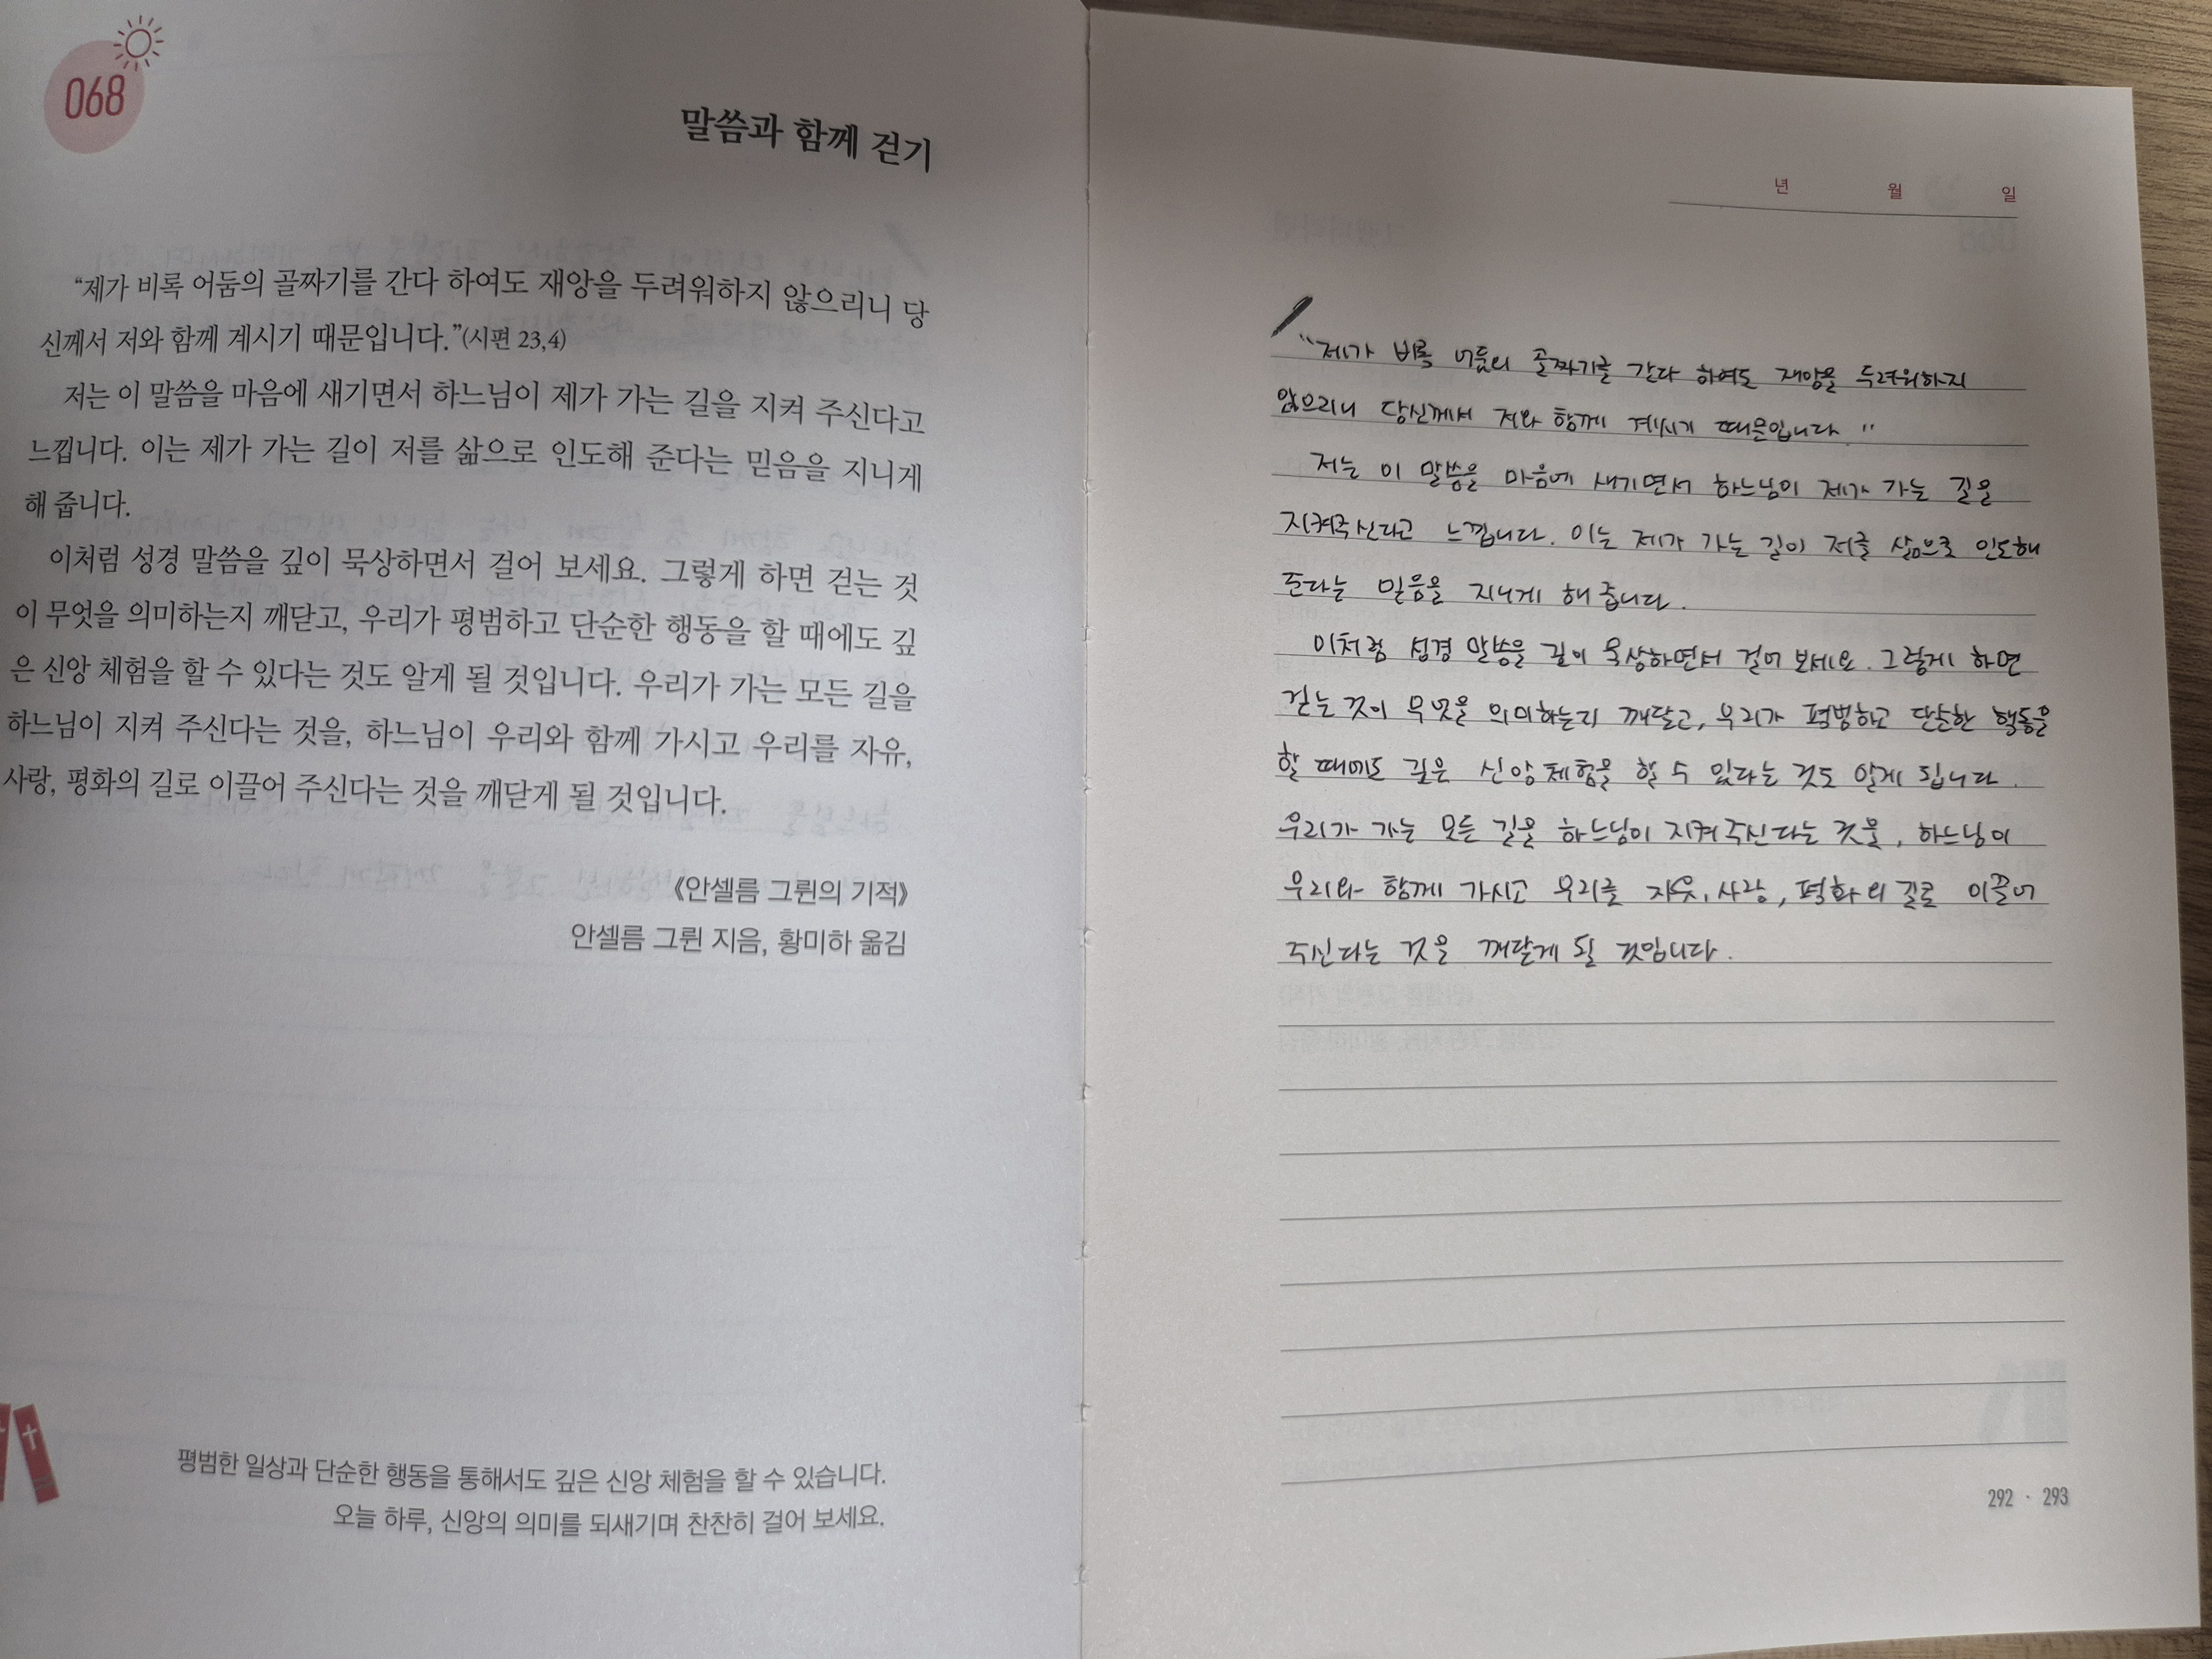 068
말씀과 함께 걷기
“제가 비록 어둠의 골짜기를 간다 하여도 재앙을 두려워하지 않으리니 당
신께서 저와 함께 계시기 때문입니다.”(시편 23,4)
저는 이 말씀을 마음에 새기면서 하느님이 제가 가는 길을 지켜 주신다고
느낍니다. 이는 제가 가는 길이 저를 삶으로 인도해 준다는 믿음을 지니게
해 줍니다.
이처럼 성경 말씀을 깊이 묵상하면서 걸어 보세요. 그렇게 하면 걷는 것
이 무엇을 의미하는지 깨닫고, 우리가 평범하고 단순한 행동을 할 때에도 깊
은 신앙 체험을 할 수 있다는 것도 알게 될 것입니다. 우리가 가는 모든 길을
하느님이 지켜 주신다는 것을, 하느님이 우리와 함께 가시고 우리를 자유,
사랑, 평화의 길로 이끌어 주신다는 것을 깨닫게 될 것입니다.
《안셀름 그륀의 기적》
안셀름 그륀 지음, 황미하 옮김
평범한 일상과 단순한 행동을 통해서도 깊은 신앙 체험을 할 수 있습니다.
오늘 하루, 신앙의 의미를 되새기며 찬찬히 걸어 보세요.
년 월 일
“제가 비록 어둠의 골짜기를 간다 하여도 재앙을 두려워하지
않으리니 당신께서 저와 함께 계시기 때문입니다.”
저는 이 말씀을 마음에 새기면서 하느님이 제가 가는 길을
지켜주신다고 느낍니다. 이는 제가 가는 길이 저를 삶으로 인도해
준다는 믿음을 지니게 해 줍니다.
이처럼 성경 말씀을 깊이 묵상하면서 걸어 보세요. 그렇게 하면
걷는 것이 무엇을 의미하는지 깨달고, 우리가 평범하고 단순한 행동을
할 때에도 깊은 신앙 체험을 할 수 있다는 것도 알게 됩니다.
우리가 가는 모든 길을 하느님이 지켜주신다는 것을, 하느님이
우리와 함께 가시고 우리를 자유, 사랑, 평화의 길로 이끌어
주신다는 것을 깨달게 될 것입니다.
292 · 293